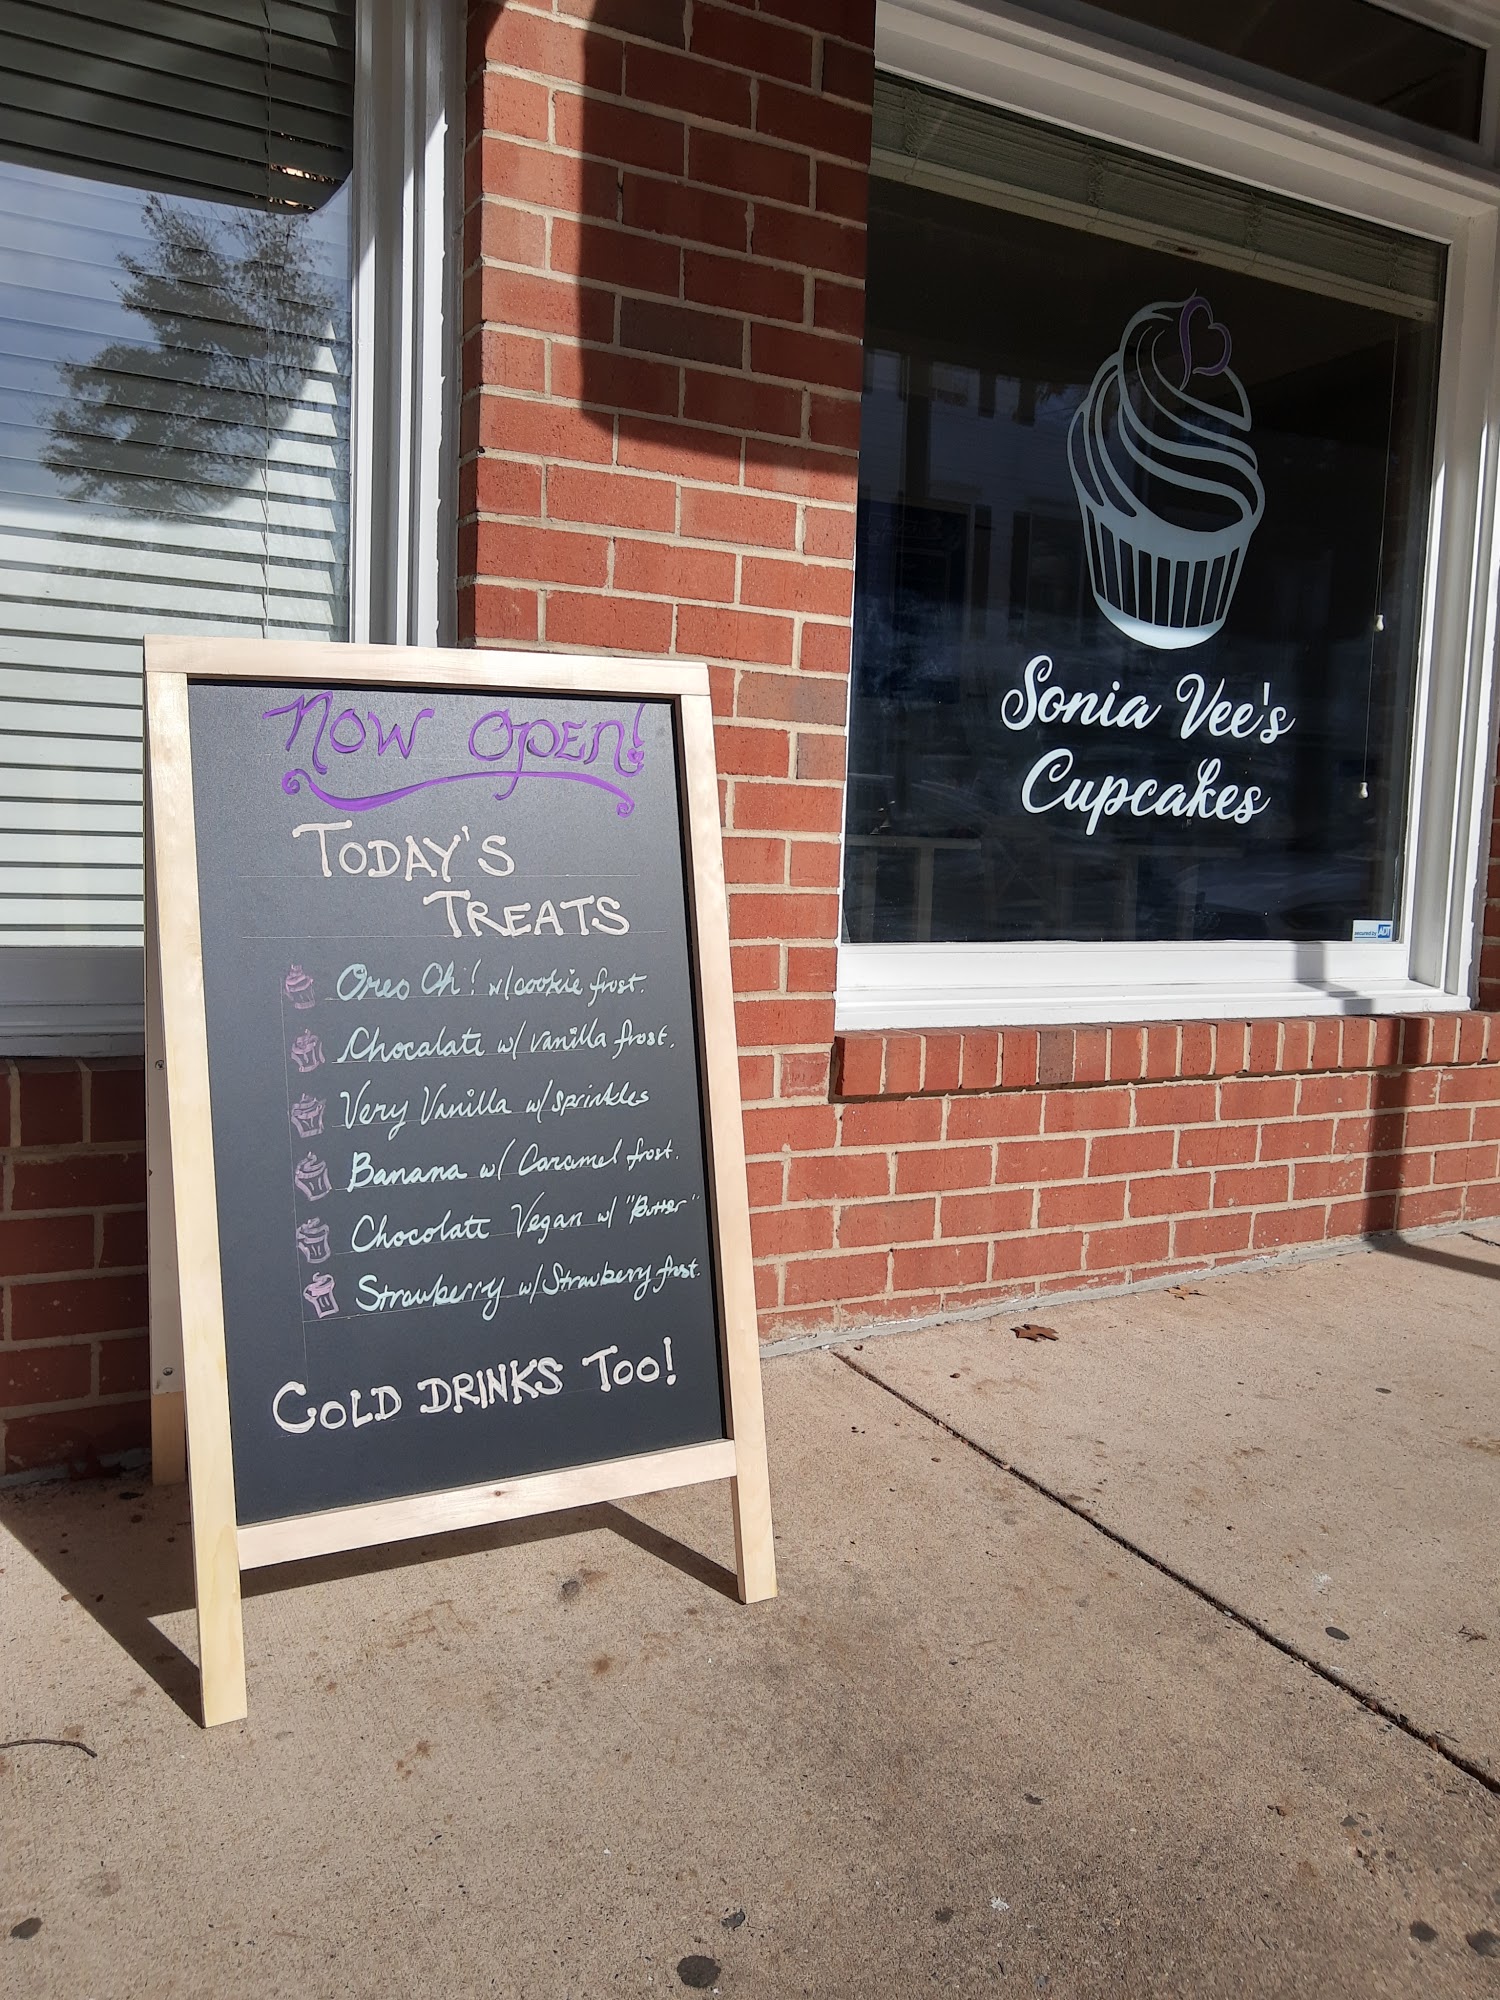 Now Open!
Today's
Treats
Oreo Oh! w/cookie frost.
Chocalate w/ vanilla frost.
Very Vanilla w/ sprinkles
Banana w/ Caramel frost.
Chocolate Vegan w/ "Butter"
Strawberry w/ Strawberry frost.
Cold drinks Too!
Sonia Vee's
Cupcakes
secured by ADT